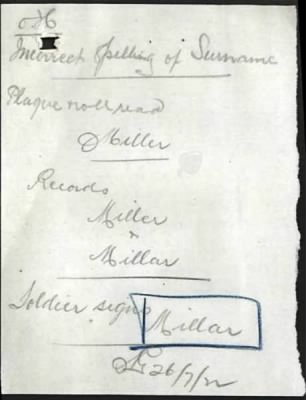 Incorrect spelling of Surname
Plaque roll read
Miller
Records
Miller
Millar
Soldier signs Millar
26/7/22